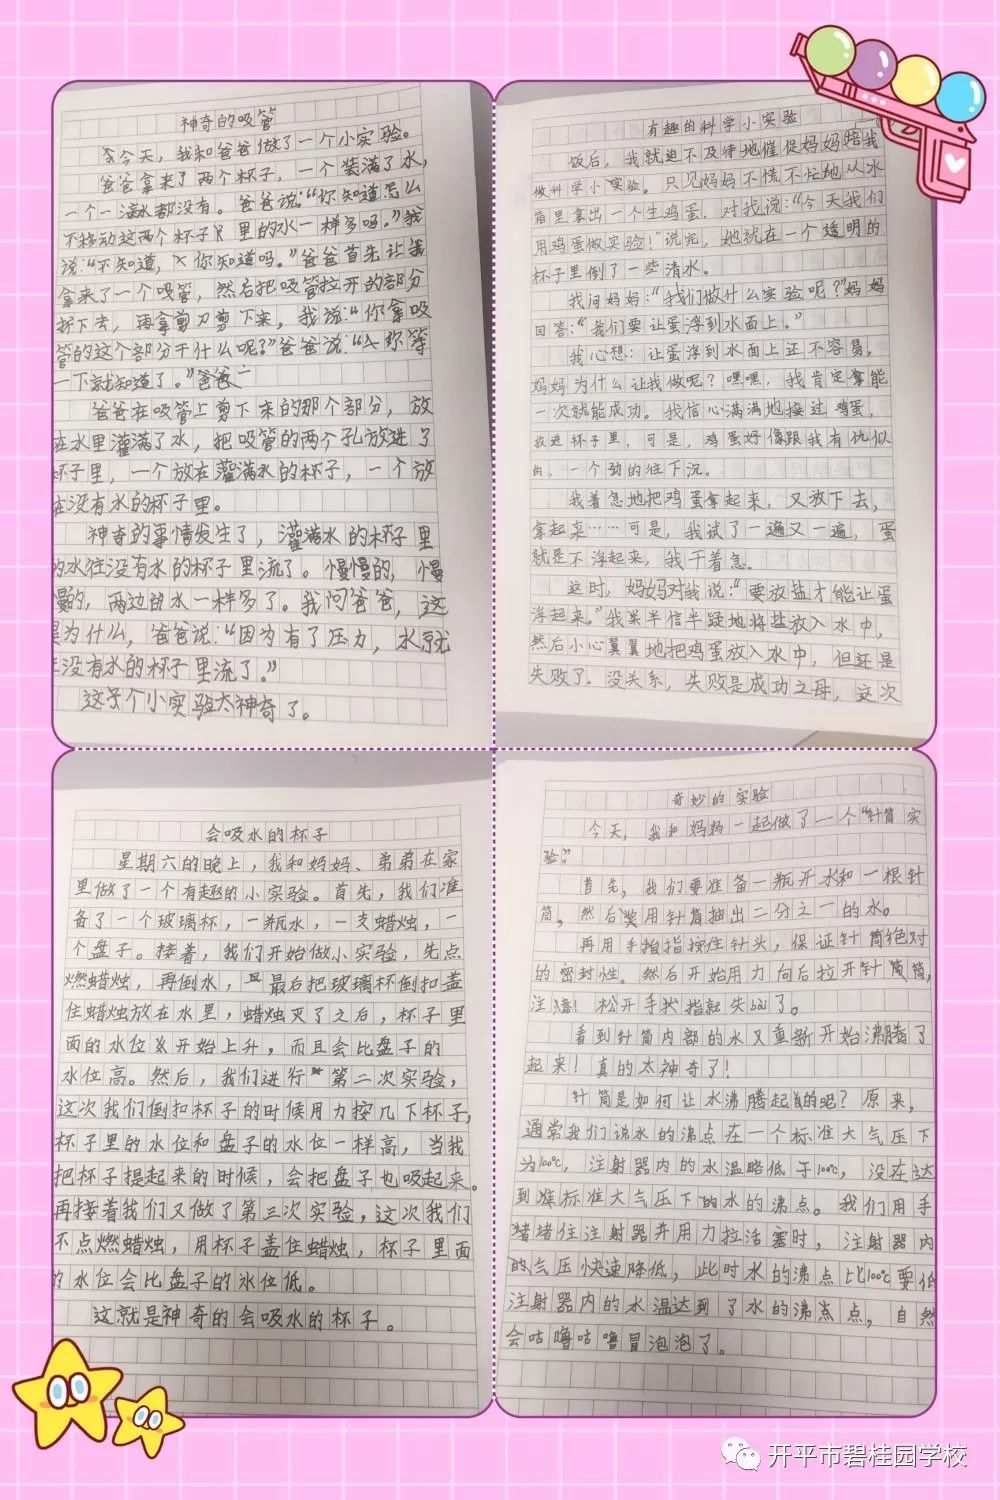 神奇的吸管
今天，我和爸爸做了一个小实验。
爸爸拿来了两个杯子，一个装满了水，
一个一滴水都没有。爸爸说：“你知道怎么
不移动这两个杯子里的水一样多吗。”我
说：“不知道，你知道吗。”爸爸首先让我
拿来了一个吸管，然后把吸管拉开的部分
折下去，再拿剪刀剪下来，我说：“你拿吸
管的这个部分干什么呢？”爸爸说：“你等
一下就知道了。”爸爸
爸爸在吸管上剪下来的那个部分，放
在水里灌满了水，把吸管的两个孔放进了
杯子里，一个放在灌满水的杯子，一个放
在没有水的杯子里。
神奇的事情发生了，灌满水的杯子里
的水往没有水的杯子里流了。慢慢的，慢
慢的，两边的水一样多了。我问爸爸，这
是为什么，爸爸说：“因为有了压力，水就
往没有水的杯子里流了。”
这个小实验太神奇了。
有趣的科学小实验
饭后，我就迫不及待地催促妈妈陪我
做科学小实验。只见妈妈不慌不忙地从冰
箱里拿出一个生鸡蛋，对我说：“今天我们
用鸡蛋做实验！”说完，她就在一个透明的
杯子里倒了一些清水。
我问妈妈：“我们做什么实验呢？”妈妈
回答：“我们要让蛋浮到水面上。”
我心想：让蛋浮到水面上还不容易，
妈妈为什么让我做呢？嘿嘿，我肯定能
一次就能成功。我信心满满地接过鸡蛋，
放进杯子里，可是，鸡蛋好像跟我有仇似
的，一个劲的往下沉。
我着急地把鸡蛋拿起来，又放下去，
拿起来……可是，我试了一遍又一遍，蛋
就是不浮起来，我干着急。
这时，妈妈对我说：“要放盐才能让蛋
浮起来。”我半信半疑地将盐放入水中，
然后小心翼翼地把鸡蛋放入水中，但还是
失败了。没关系，失败是成功之母，这次
会吸水的杯子
星期六的晚上，我和妈妈、弟弟在家
里做了一个有趣的小实验。首先，我们准
备了一个玻璃杯，一瓶水，一支蜡烛，一
个盘子。接着，我们开始做小实验，先点
燃蜡烛，再倒水，最后把玻璃杯倒扣盖
住蜡烛放在水里，蜡烛灭了之后，杯子里
面的水位开始上升，而且会比盘子的
水位高。然后，我们进行第二次实验，
这次我们倒扣杯子的时候用力按几下杯子，
杯子里的水位和盘子的水位一样高，当我
把杯子提起来的时候，会把盘子也吸起来。
再接着我们又做了第三次实验，这次我们
不点燃蜡烛，用杯子盖住蜡烛，杯子里面
的水位会比盘子的水位低。
这就是神奇的会吸水的杯子。
奇妙的实验
今天，我和妈妈一起做了一个“针筒实
验”。
首先，我们要准备一瓶开水和一根针
筒，然后用针筒抽出二分之一的水。
再用手指按住针头，保证针筒绝对
的密封性。然后开始用力向后拉开针筒，
注意！松开手指就失败了。
看到针筒内部的水又重新开始沸腾了
起来！真的太神奇了！
针筒是如何让水沸腾起的呢？原来，
通常我们说水的沸点在一个标准大气压下
为100℃，注射器内的水温略低于100℃，没在达
到标准大气压下的水的沸点。我们用手
堵住注射器并用力拉活塞时，注射器内
的气压快速降低，此时水的沸点比100℃要低
注射器内的水温达到了水的沸点，自然
会咕噜咕噜冒泡泡了。
开平市碧桂园学校